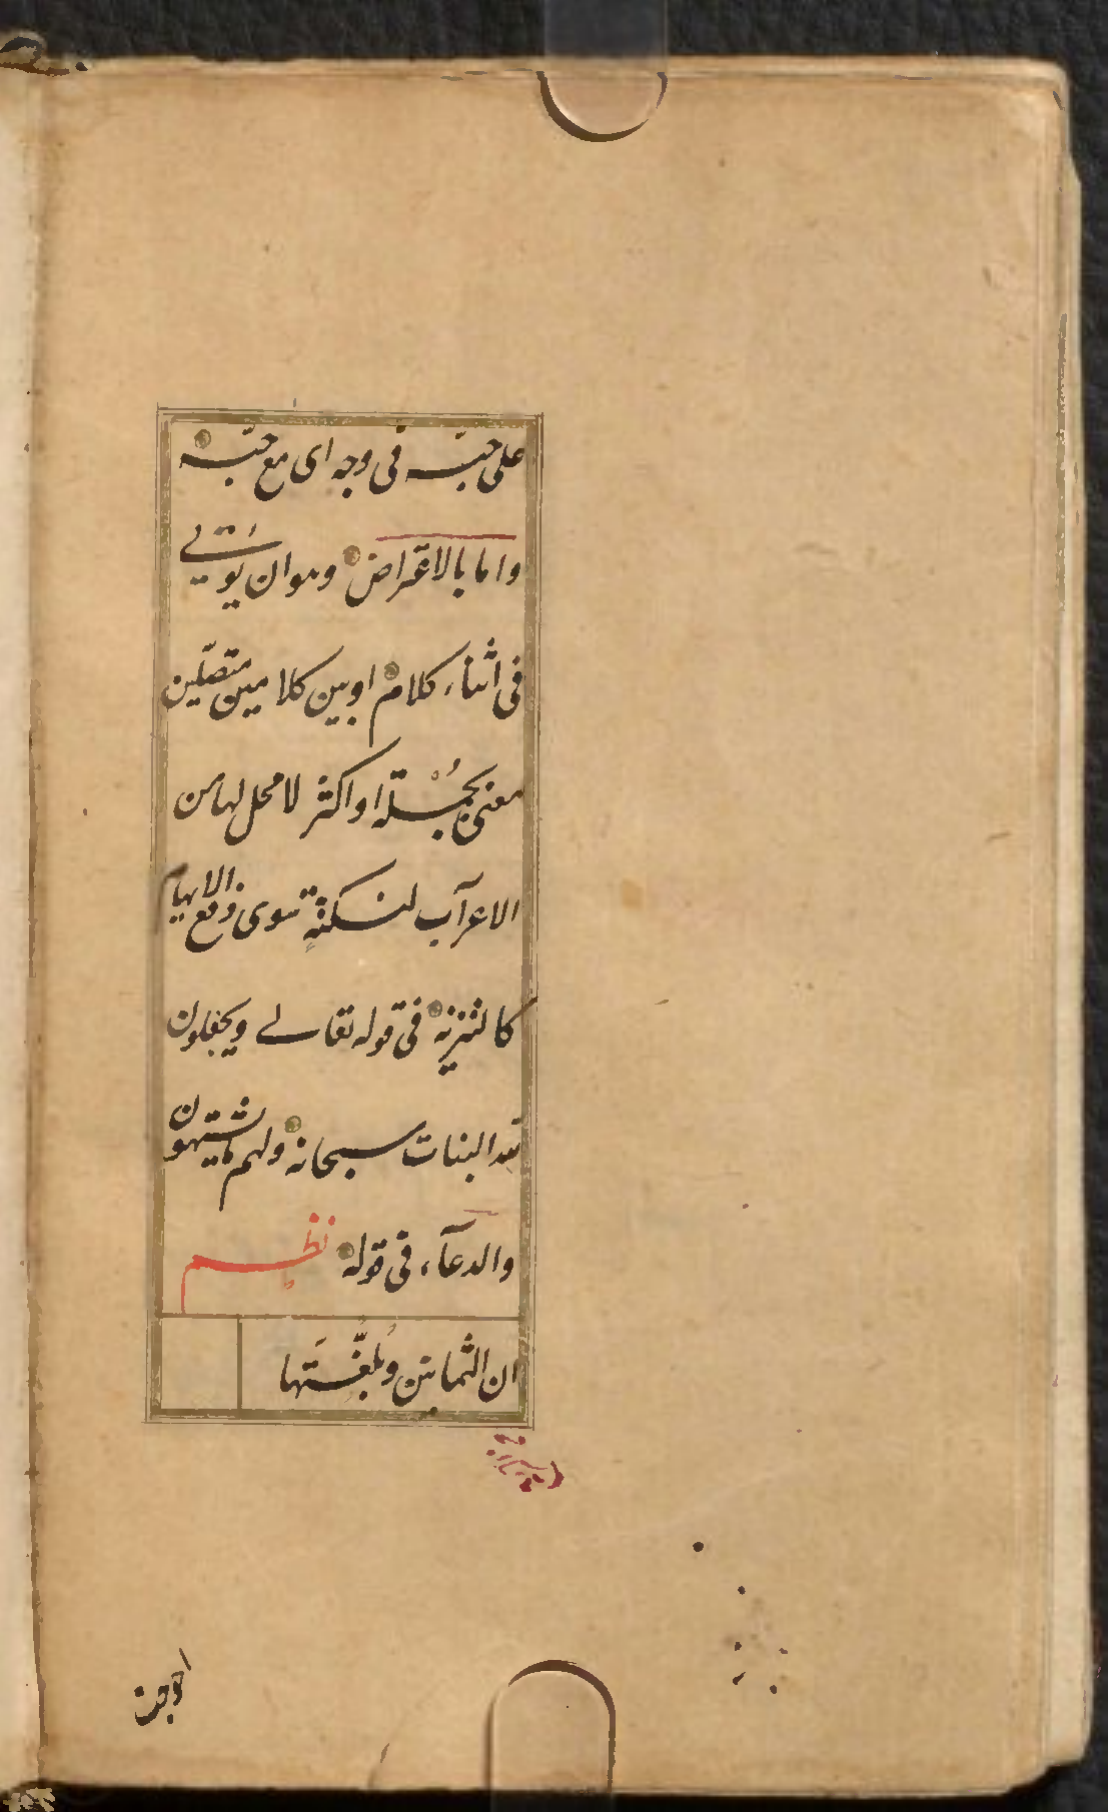 على حبّه فى وجه اى مع حبّه
واما بالاعتراض وهو ان يُوتى
فى اثناء كلام او بين كلامين متصلين
معنى بجُمْلة او اكثر لا محل لها من
الاعرآب لنكتةٍ سوى دفع الايهام
كالتنزيه فى قوله تعالے ويجعلون
لله البنات سبحانه ولهم ما يشتهون
والدعآء فى قوله نظم
ان الثمانين وبُلّغتَها